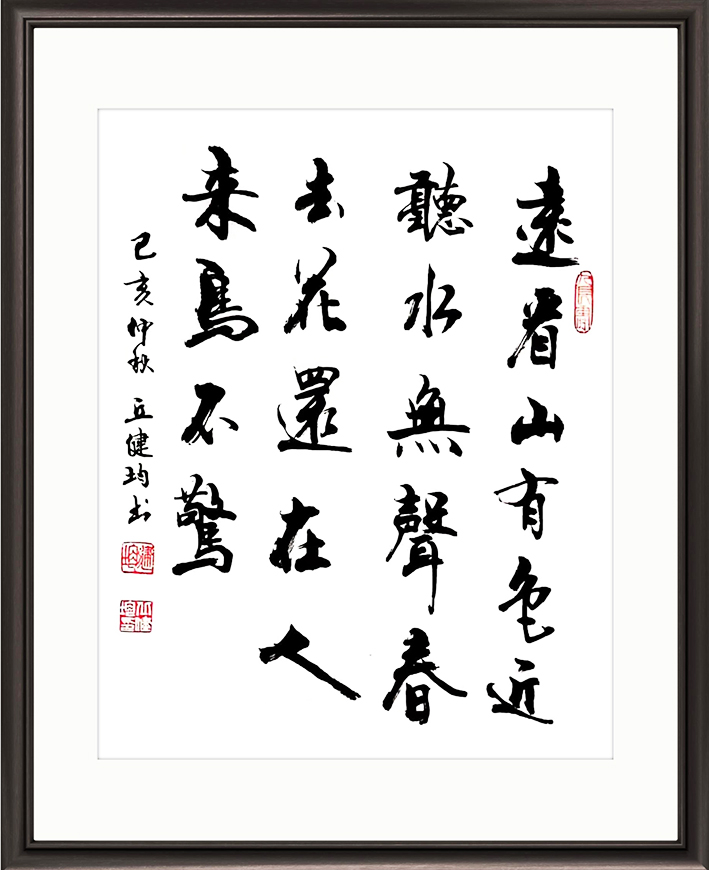 遠看山有色近
聽水無聲春
去花還在人
来鳥不驚
己亥仲秋 丘健均书